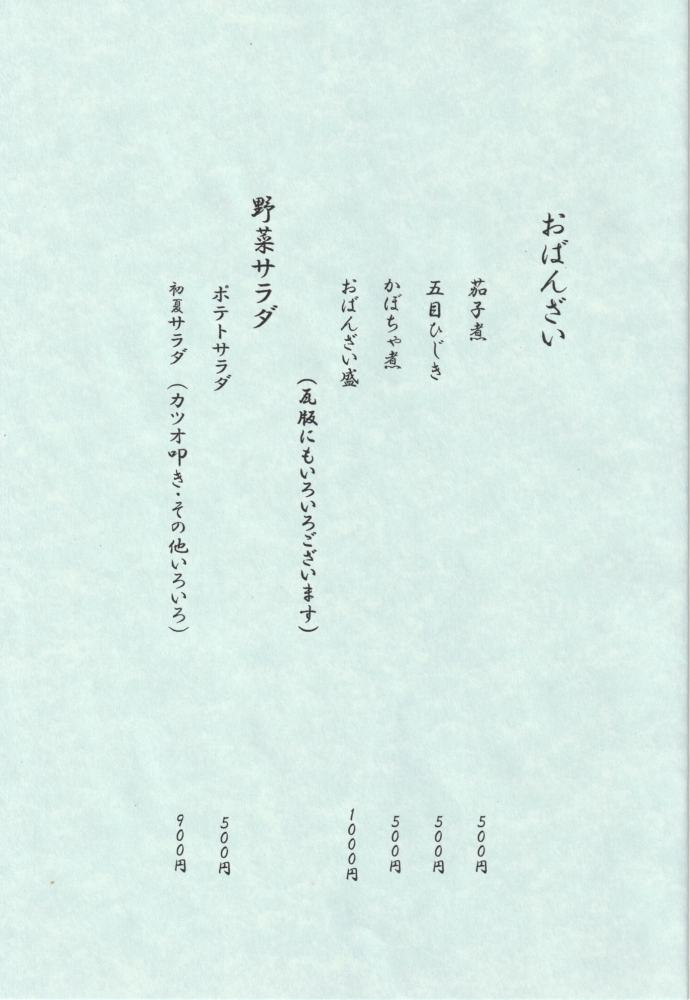 おばんざい
茄子煮 500円
五目ひじき 500円
かぼちゃ煮 500円
おばんざい盛 1000円
(瓦版にもいろいろございます)
野菜サラダ
ポテトサラダ 500円
初夏サラダ (カツオ叩き・その他いろいろ) 900円